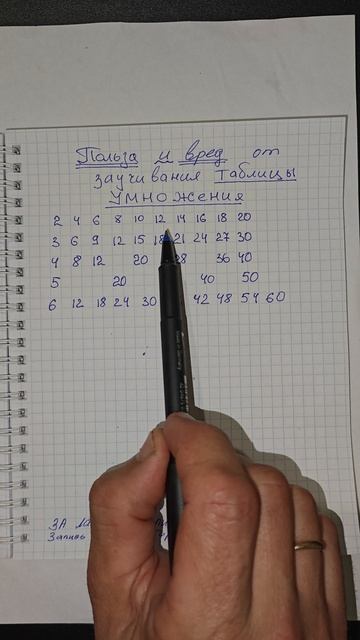 Польза и вред от
заучивания таблицы
УМНОЖЕНИЯ
2 4 6 8 10 12 14 16 18 20
3 6 9 12 15 18 21 24 27 30
4 8 12 20 28 36 40
5 20 40 50
6 12 18 24 30 42 48 54 60
ЗА
Запись